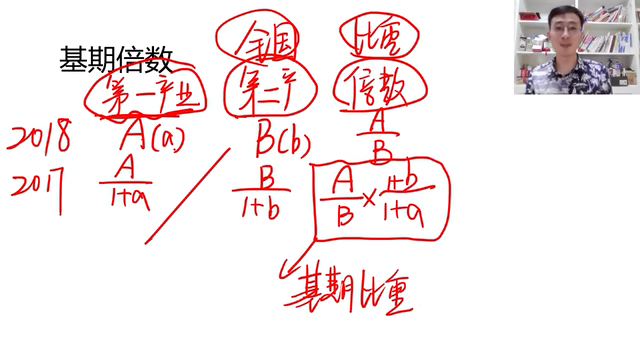 全国 比重
基期倍数
第一产业 第二产 倍数
2018 A(a) B(b) A/B
2017 A/1+a B/1+b A/B×1+b/1+a
基期比重